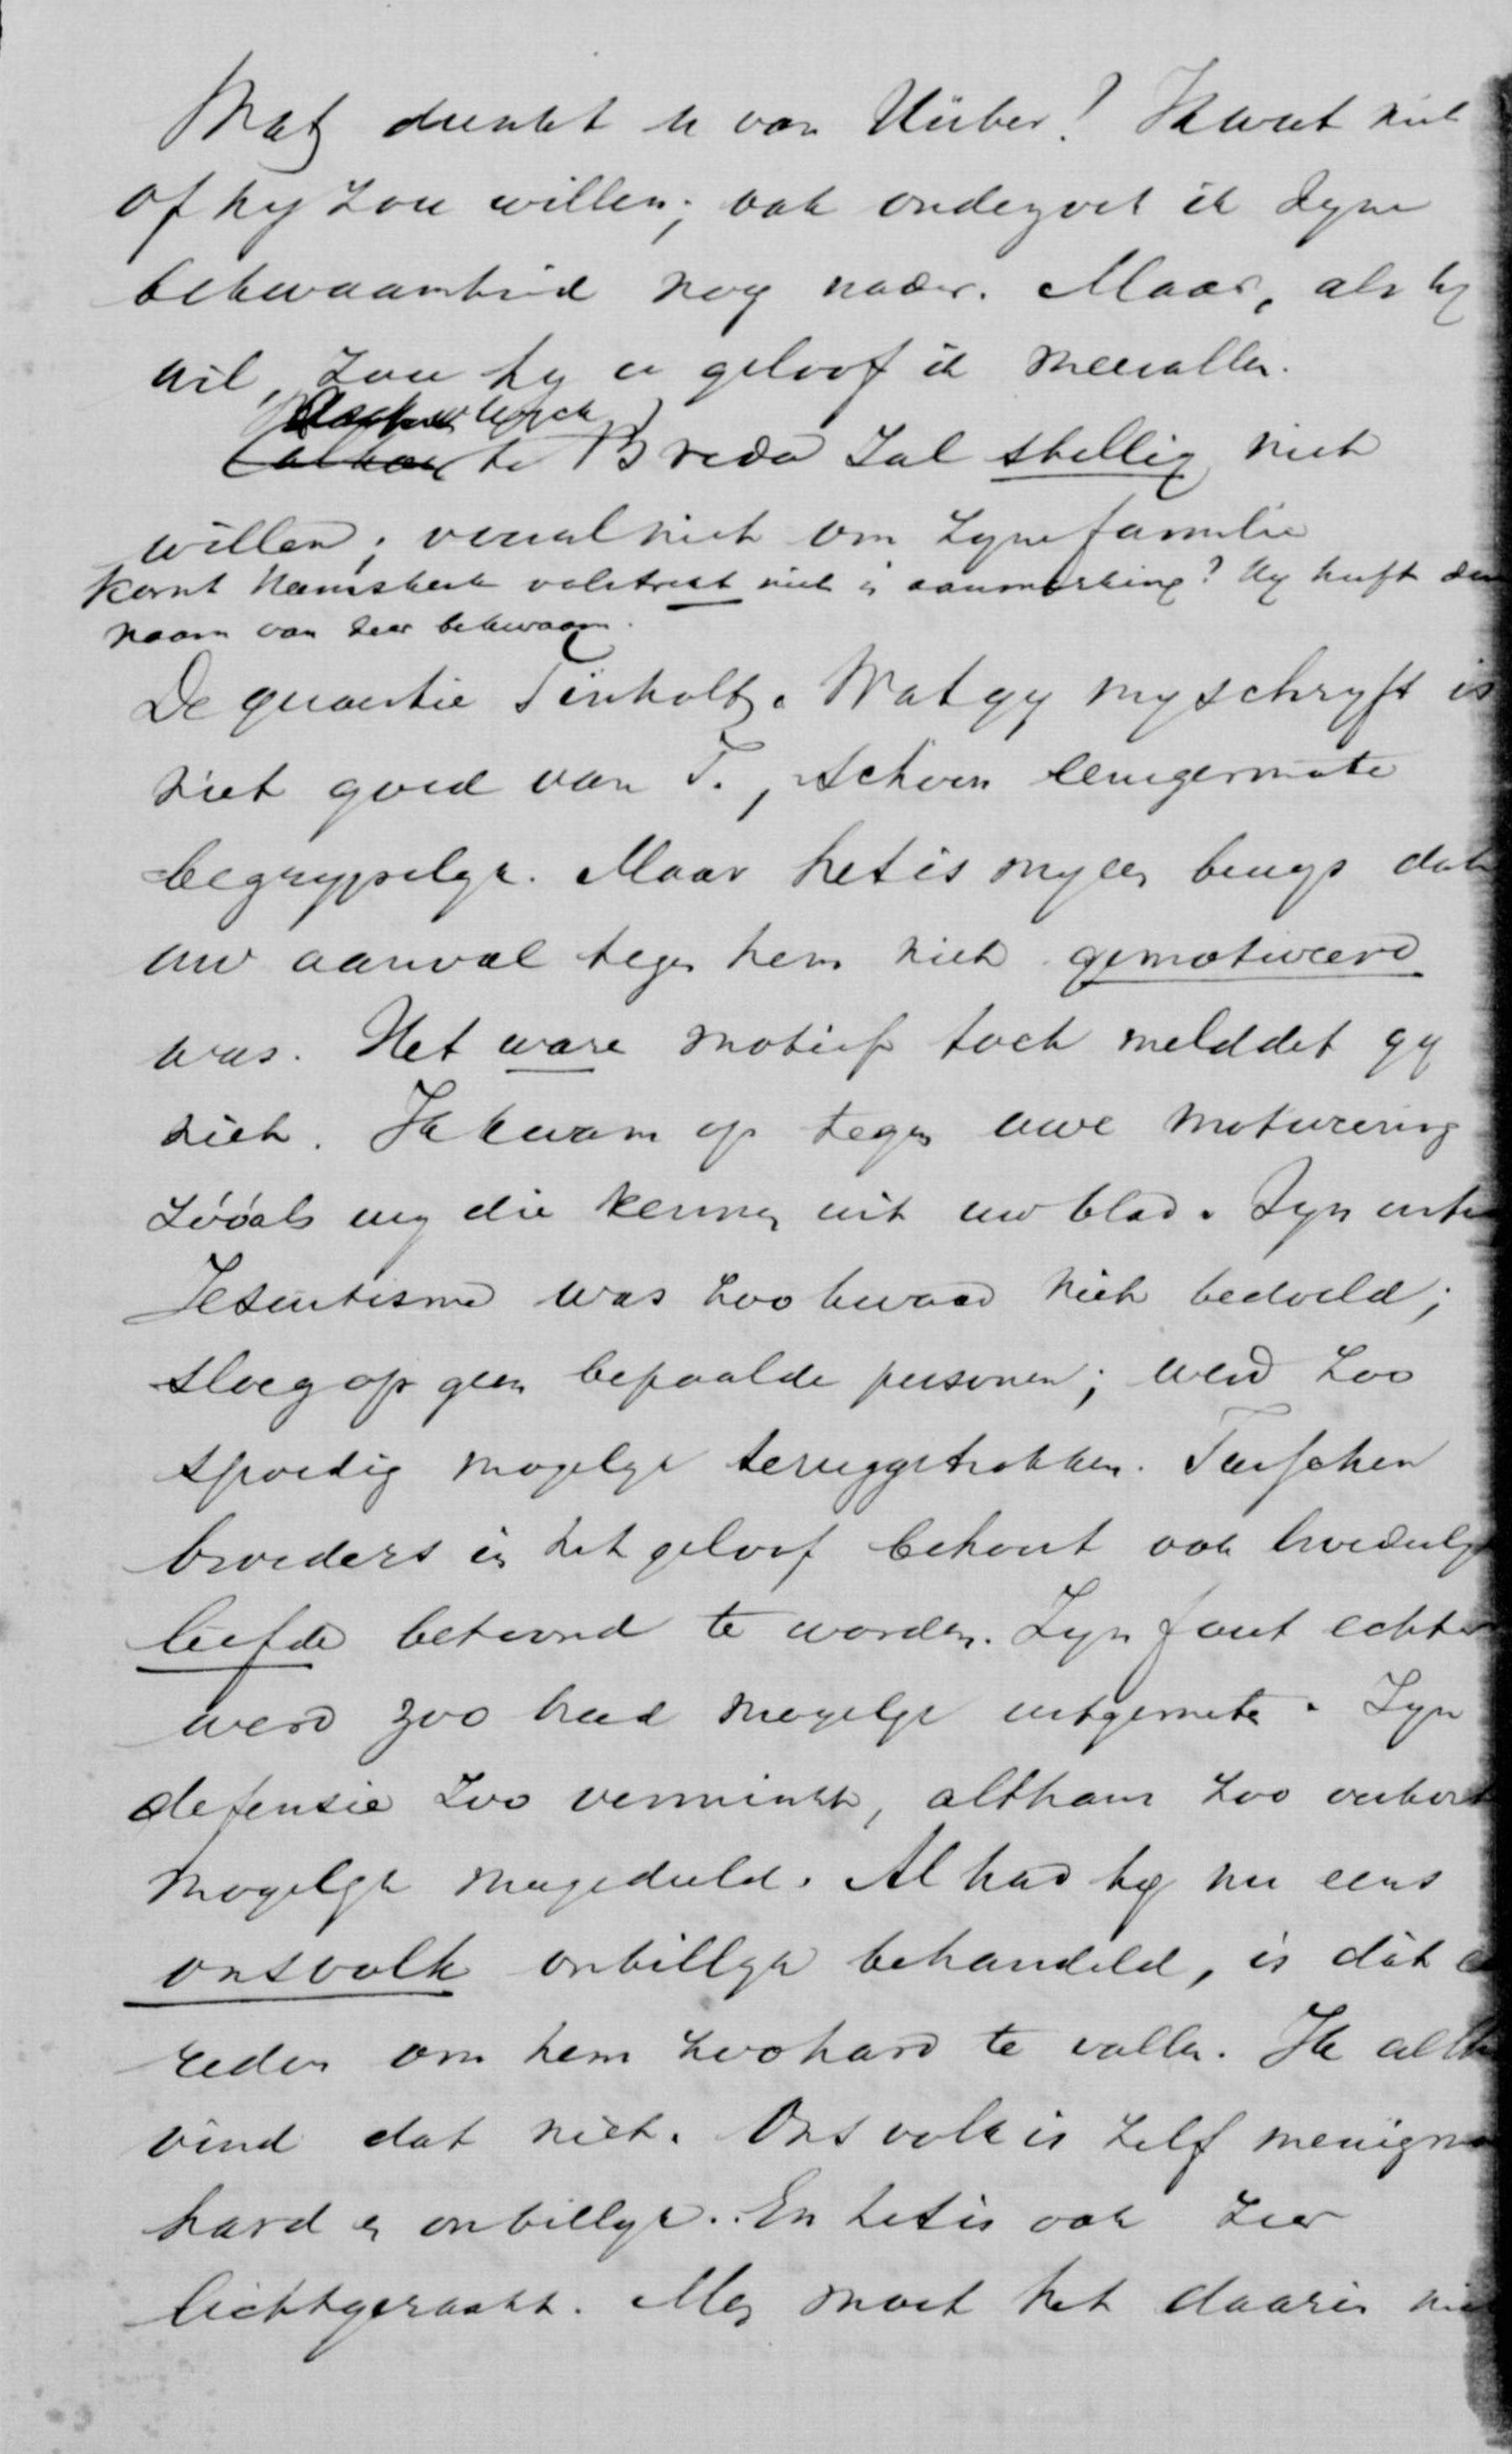 Wat dunkt u van Huber? Ik weet niet
of hij zou willen; ook onderzoek ik zijne
bekwaamheid nog nader. Maar, als hij
wil, zou hij er geloof ik meevallen.
te Breda zal stellig niet
willen; vooral niet om zijne familie
Komt Heemskerk volstrekt niet in aanmerking? Hij heeft den
naam van zeer bekwaam.
De quaestie Tinholt. Wat gij mij schrijft is
niet goed van T., schoon eenigermate
begrijpelijk. Maar het is mij een bewijs dat
uw aanval tegen hem niet gemotiveerd
was. Het ware motief toch melddet gij
niet. Ik kwam op tegen uwe motiveering
zóóals wij die kennen uit uw blad. Zijn
Jesuitisme was zoo kwaad niet bedoeld;
sloeg op geen bepaalde personen; werd zoo
spoedig mogelijk teruggetrokken. Tusschen
broeders in het geloof behoort ook broederlijke
liefde betoond te worden. Zijn fout echter
werd zoo breed mogelijk uitgemeten. Zijn
defensie zoo verminkt, althans zoo verkort
mogelijk meegedeeld. Al had hij nu eens
ons volk onbillijk behandeld, is dát
reden om hem zoo hard te vallen. Ik althans
vind dat niet. Ons volk is zelf menigmaal
hard en onbillijk. En het is ook zeer
lichtgeraakt. Men moet het daarin niet